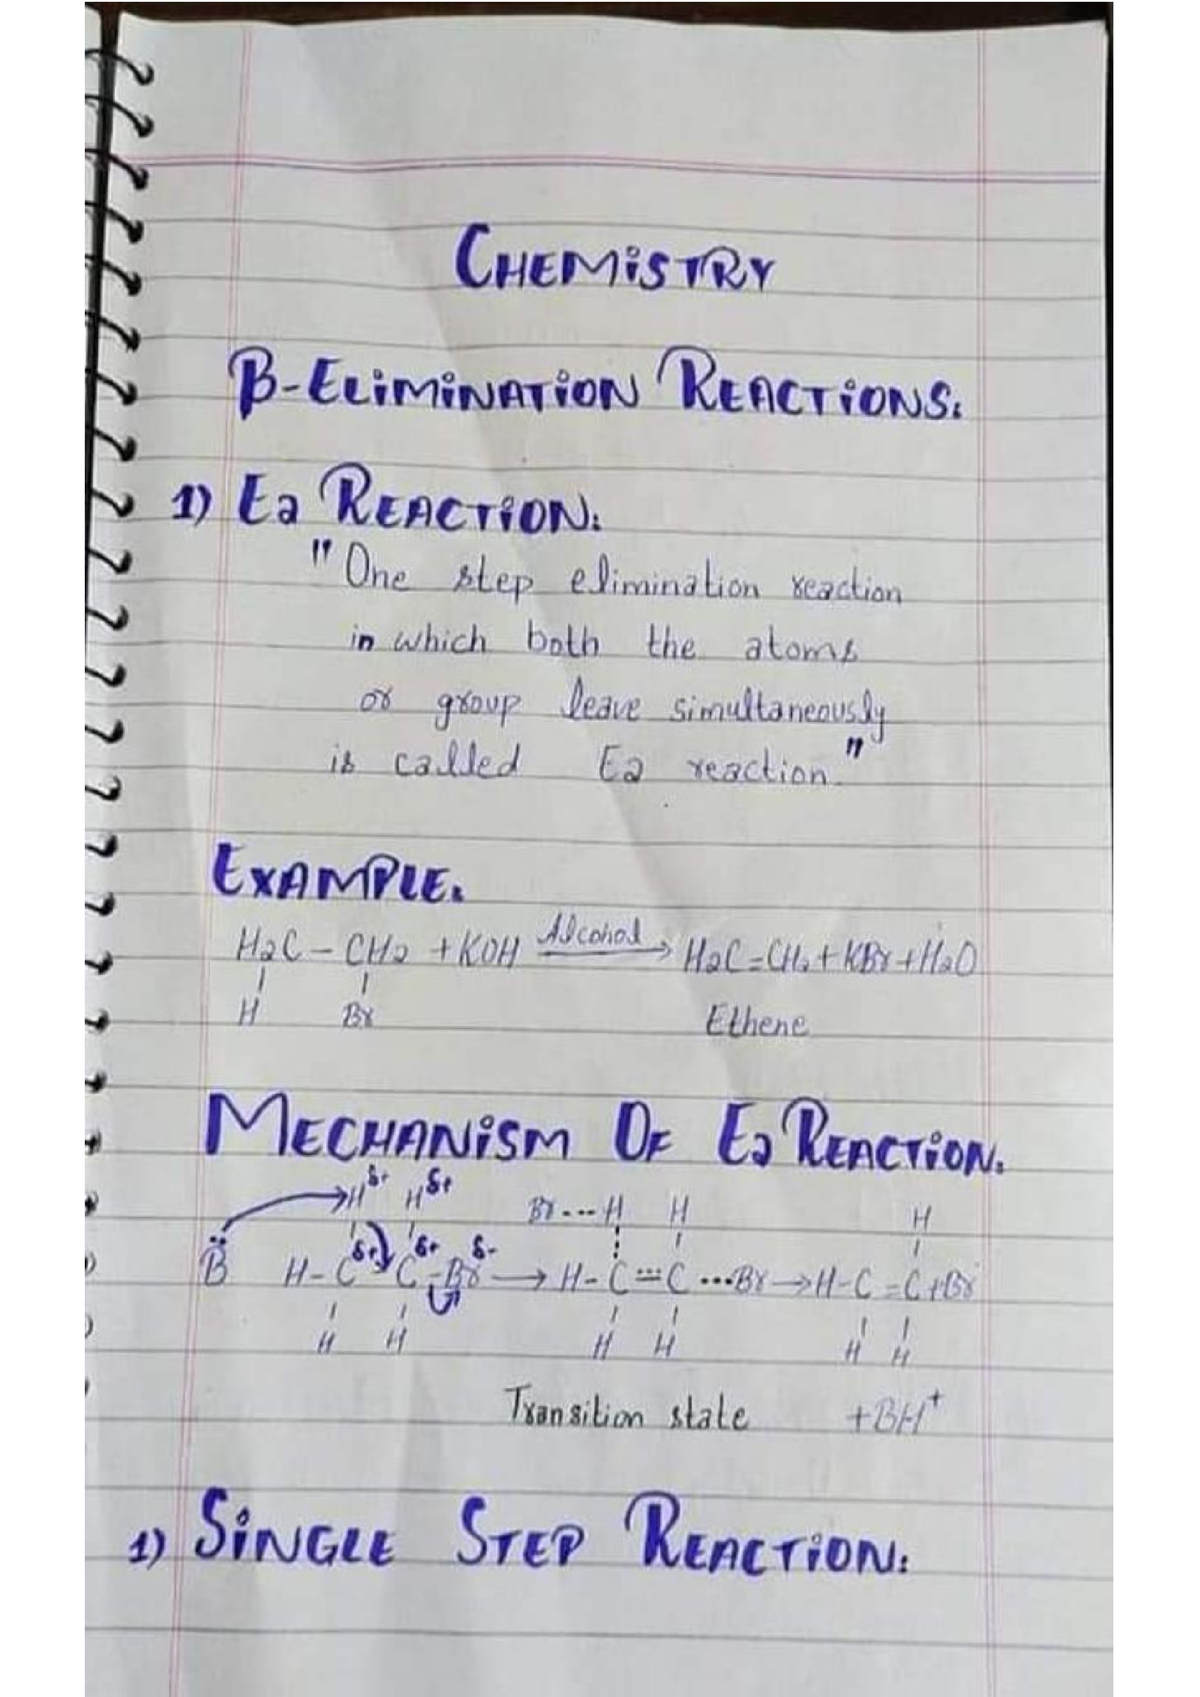 CHEMiSTRY
β-ELiMiNATiON REACTiONS:
1) E2 REACTiON:
"One step elimination reaction
in which both the atoms
or group leave simultaneously
is called E2 reaction."
EXAMPLE:
H2C – CH2 + KOH Alcohol → H2C=CH2 + KBr + H2O
H Br Ethene
MECHANiSM OF E2 REACTiON:
Hδ+ Hδ+ Br---H H H
B̈ H-C δ+ C δ+ -Br δ- → H-C ⩴ C ...Br → H-C =C+Br
H H H H H H
Transition state +BH+
1) SiNGLE STEP REACTiON: